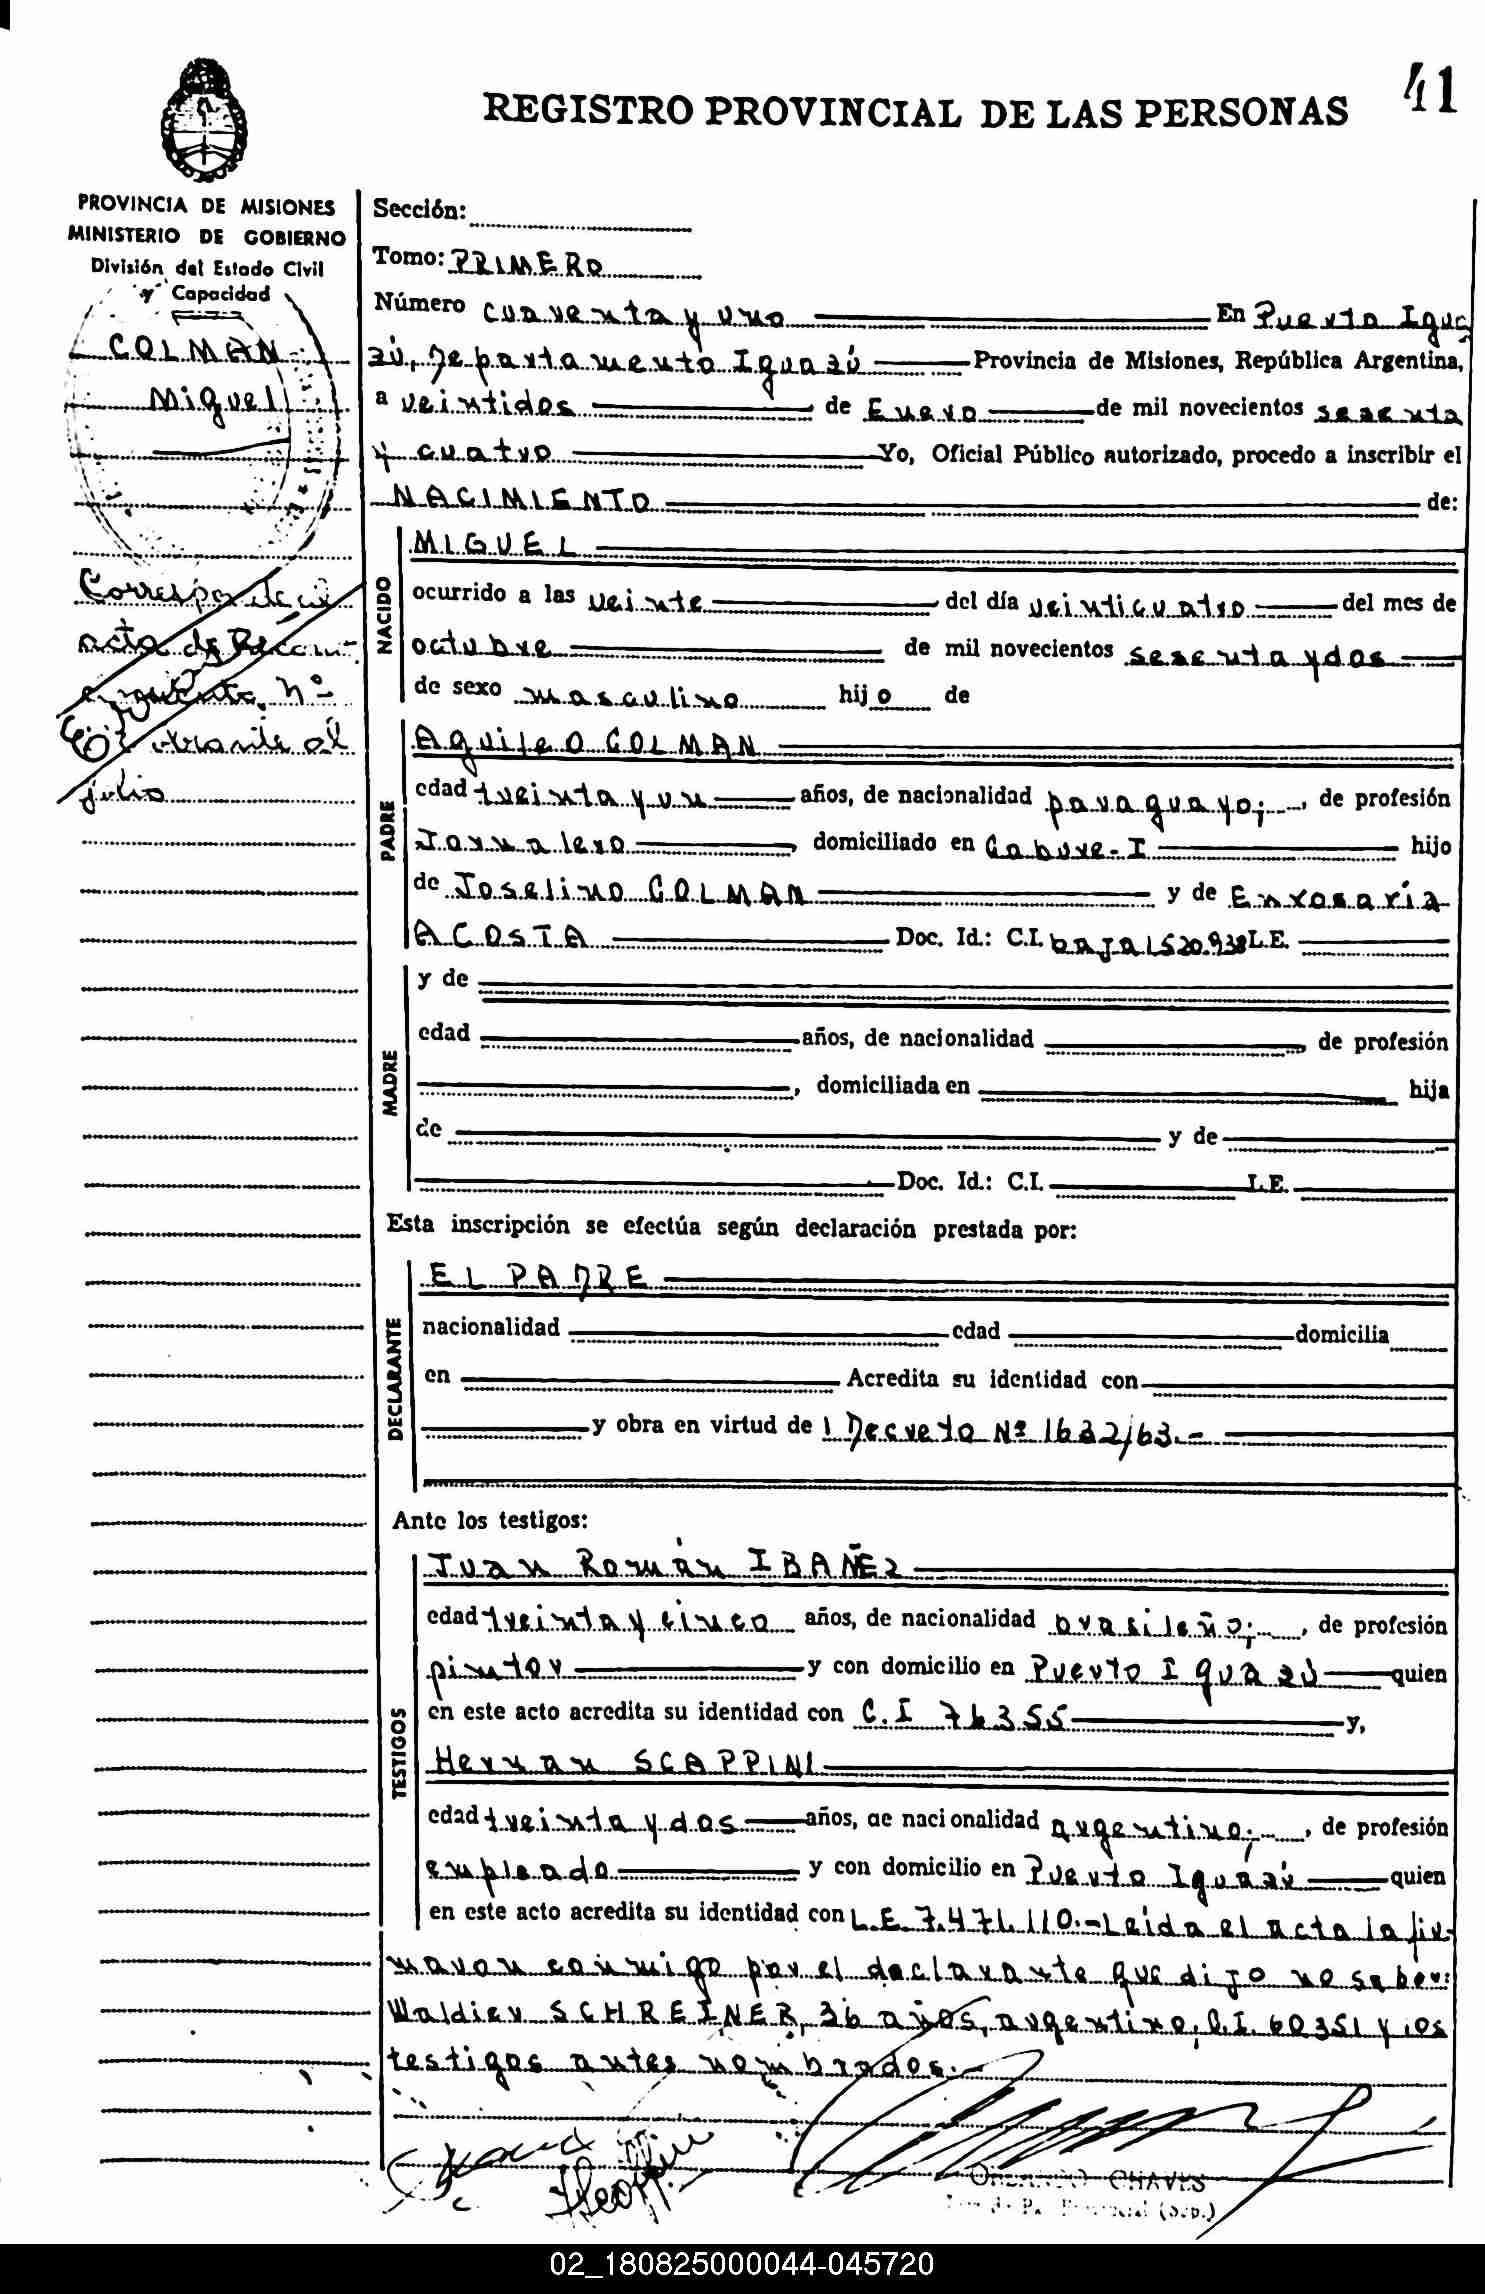 REGISTRO PROVINCIAL DE LAS PERSONAS
41
PROVINCIA DE MISIONES
MINISTERIO DE GOBIERNO
División del Estado Civil
y Capacidad
COLMAN
Miguel
Corresponde al
acta de Recono
cimiento Nº
obrante al
julio
Sección:
Tomo: PRIMERO
Número cuarenta y uno En Puerto Igua
zú, Departamento Iguazú Provincia de Misiones, República Argentina,
a veintidos de Enero de mil novecientos sesenta
y cuatro Yo, Oficial Público autorizado, procedo a inscribir el
NACIMIENTO de:
NACIDO
MIGUEL
ocurrido a las veinte del día veinticuatro del mes de
octubre de mil novecientos sesenta y dos
de sexo masculino hijo de
PADRE
Aquileo COLMAN
edad treinta y un años, de nacionalidad paraguayo;, de profesión
Jornalero, domiciliado en Cabure-I hijo
de Joselino COLMAN y de Enrosaría
ACOSTA Doc. Id.: C.I. baja 1520.938 L.E.
MADRE
y de
edad años, de nacionalidad , de profesión
, domiciliada en hija
de y de
Doc. Id.: C.I. L.E.
Esta inscripción se efectúa según declaración prestada por:
DECLARANTE
EL PADRE
nacionalidad edad domicilia
en Acredita su identidad con
y obra en virtud de l Decreto Nº 1632/63.-
Ante los testigos:
TESTIGOS
Juan Román IBAÑEZ
edad treinta y cinco años, de nacionalidad brasileño;, de profesión
pintor y con domicilio en Puerto Iguazú quien
en este acto acredita su identidad con C.I 76355 y,
Hernan SCAPPINI
edad treinta y dos años, de nacionalidad argentino;, de profesión
empleado y con domicilio en Puerto Iguazú quien
en este acto acredita su identidad con L.E. 7.471.110.-Leida el acta la fir-
maron conmigo por el declarante que dijo no saber:
Waldier SCHREINER, 36 años, argentino, C.I. 60351 y los
testigos antes nombrados.-
ORLANDO CHAVES
02_180825000044-045720